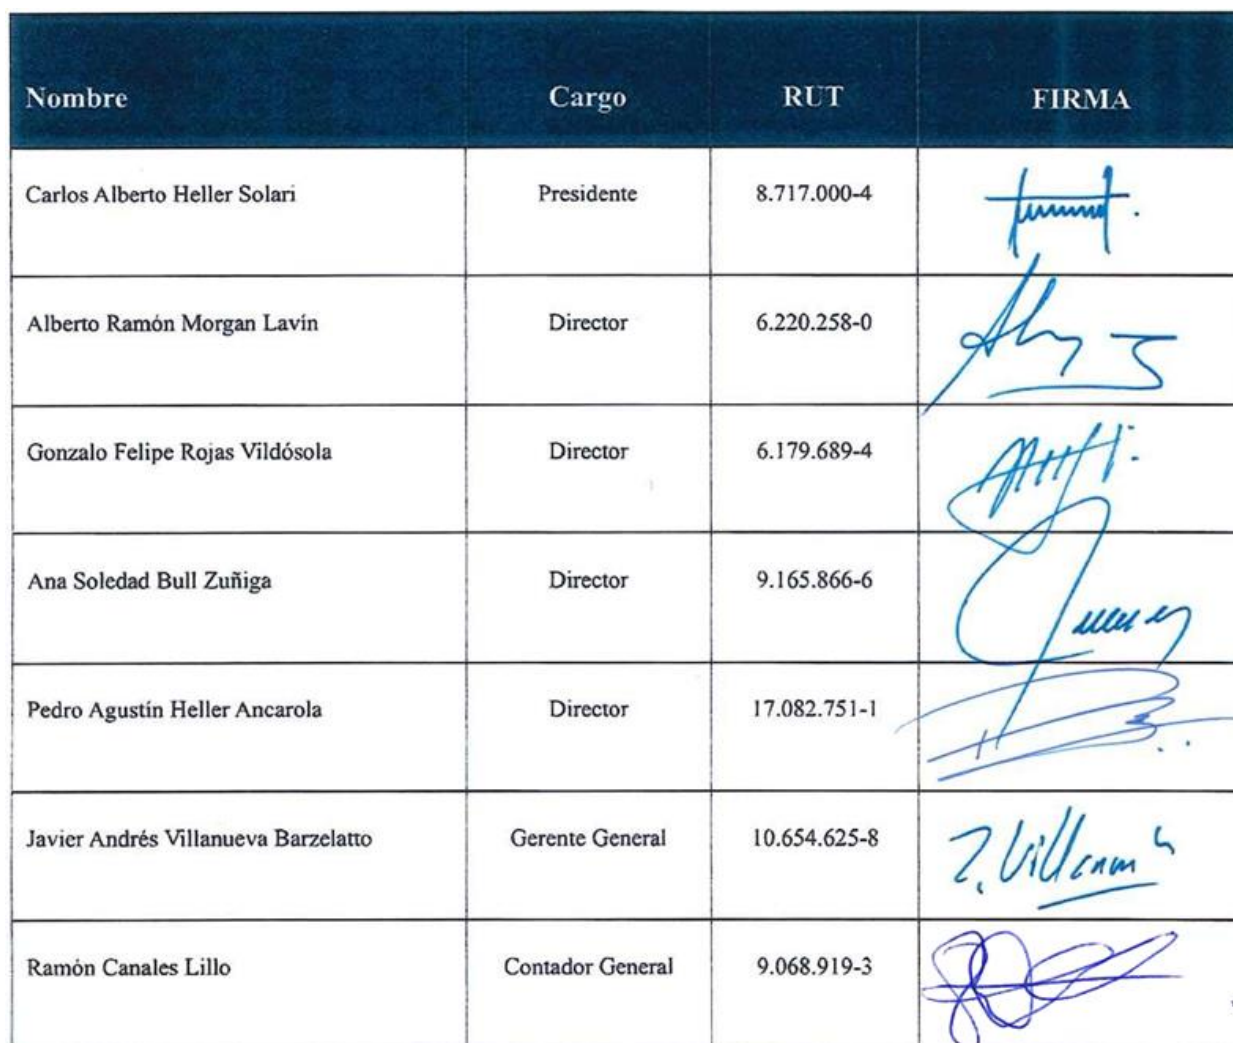 Nombre Cargo RUT FIRMA
Carlos Alberto Heller Solari Presidente 8.717.000-4
Alberto Ramón Morgan Lavín Director 6.220.258-0
Gonzalo Felipe Rojas Vildósola Director 6.179.689-4
Ana Soledad Bull Zuñiga Director 9.165.866-6
Pedro Agustín Heller Ancarola Director 17.082.751-1
Javier Andrés Villanueva Barzelatto Gerente General 10.654.625-8
Ramón Canales Lillo Contador General 9.068.919-3